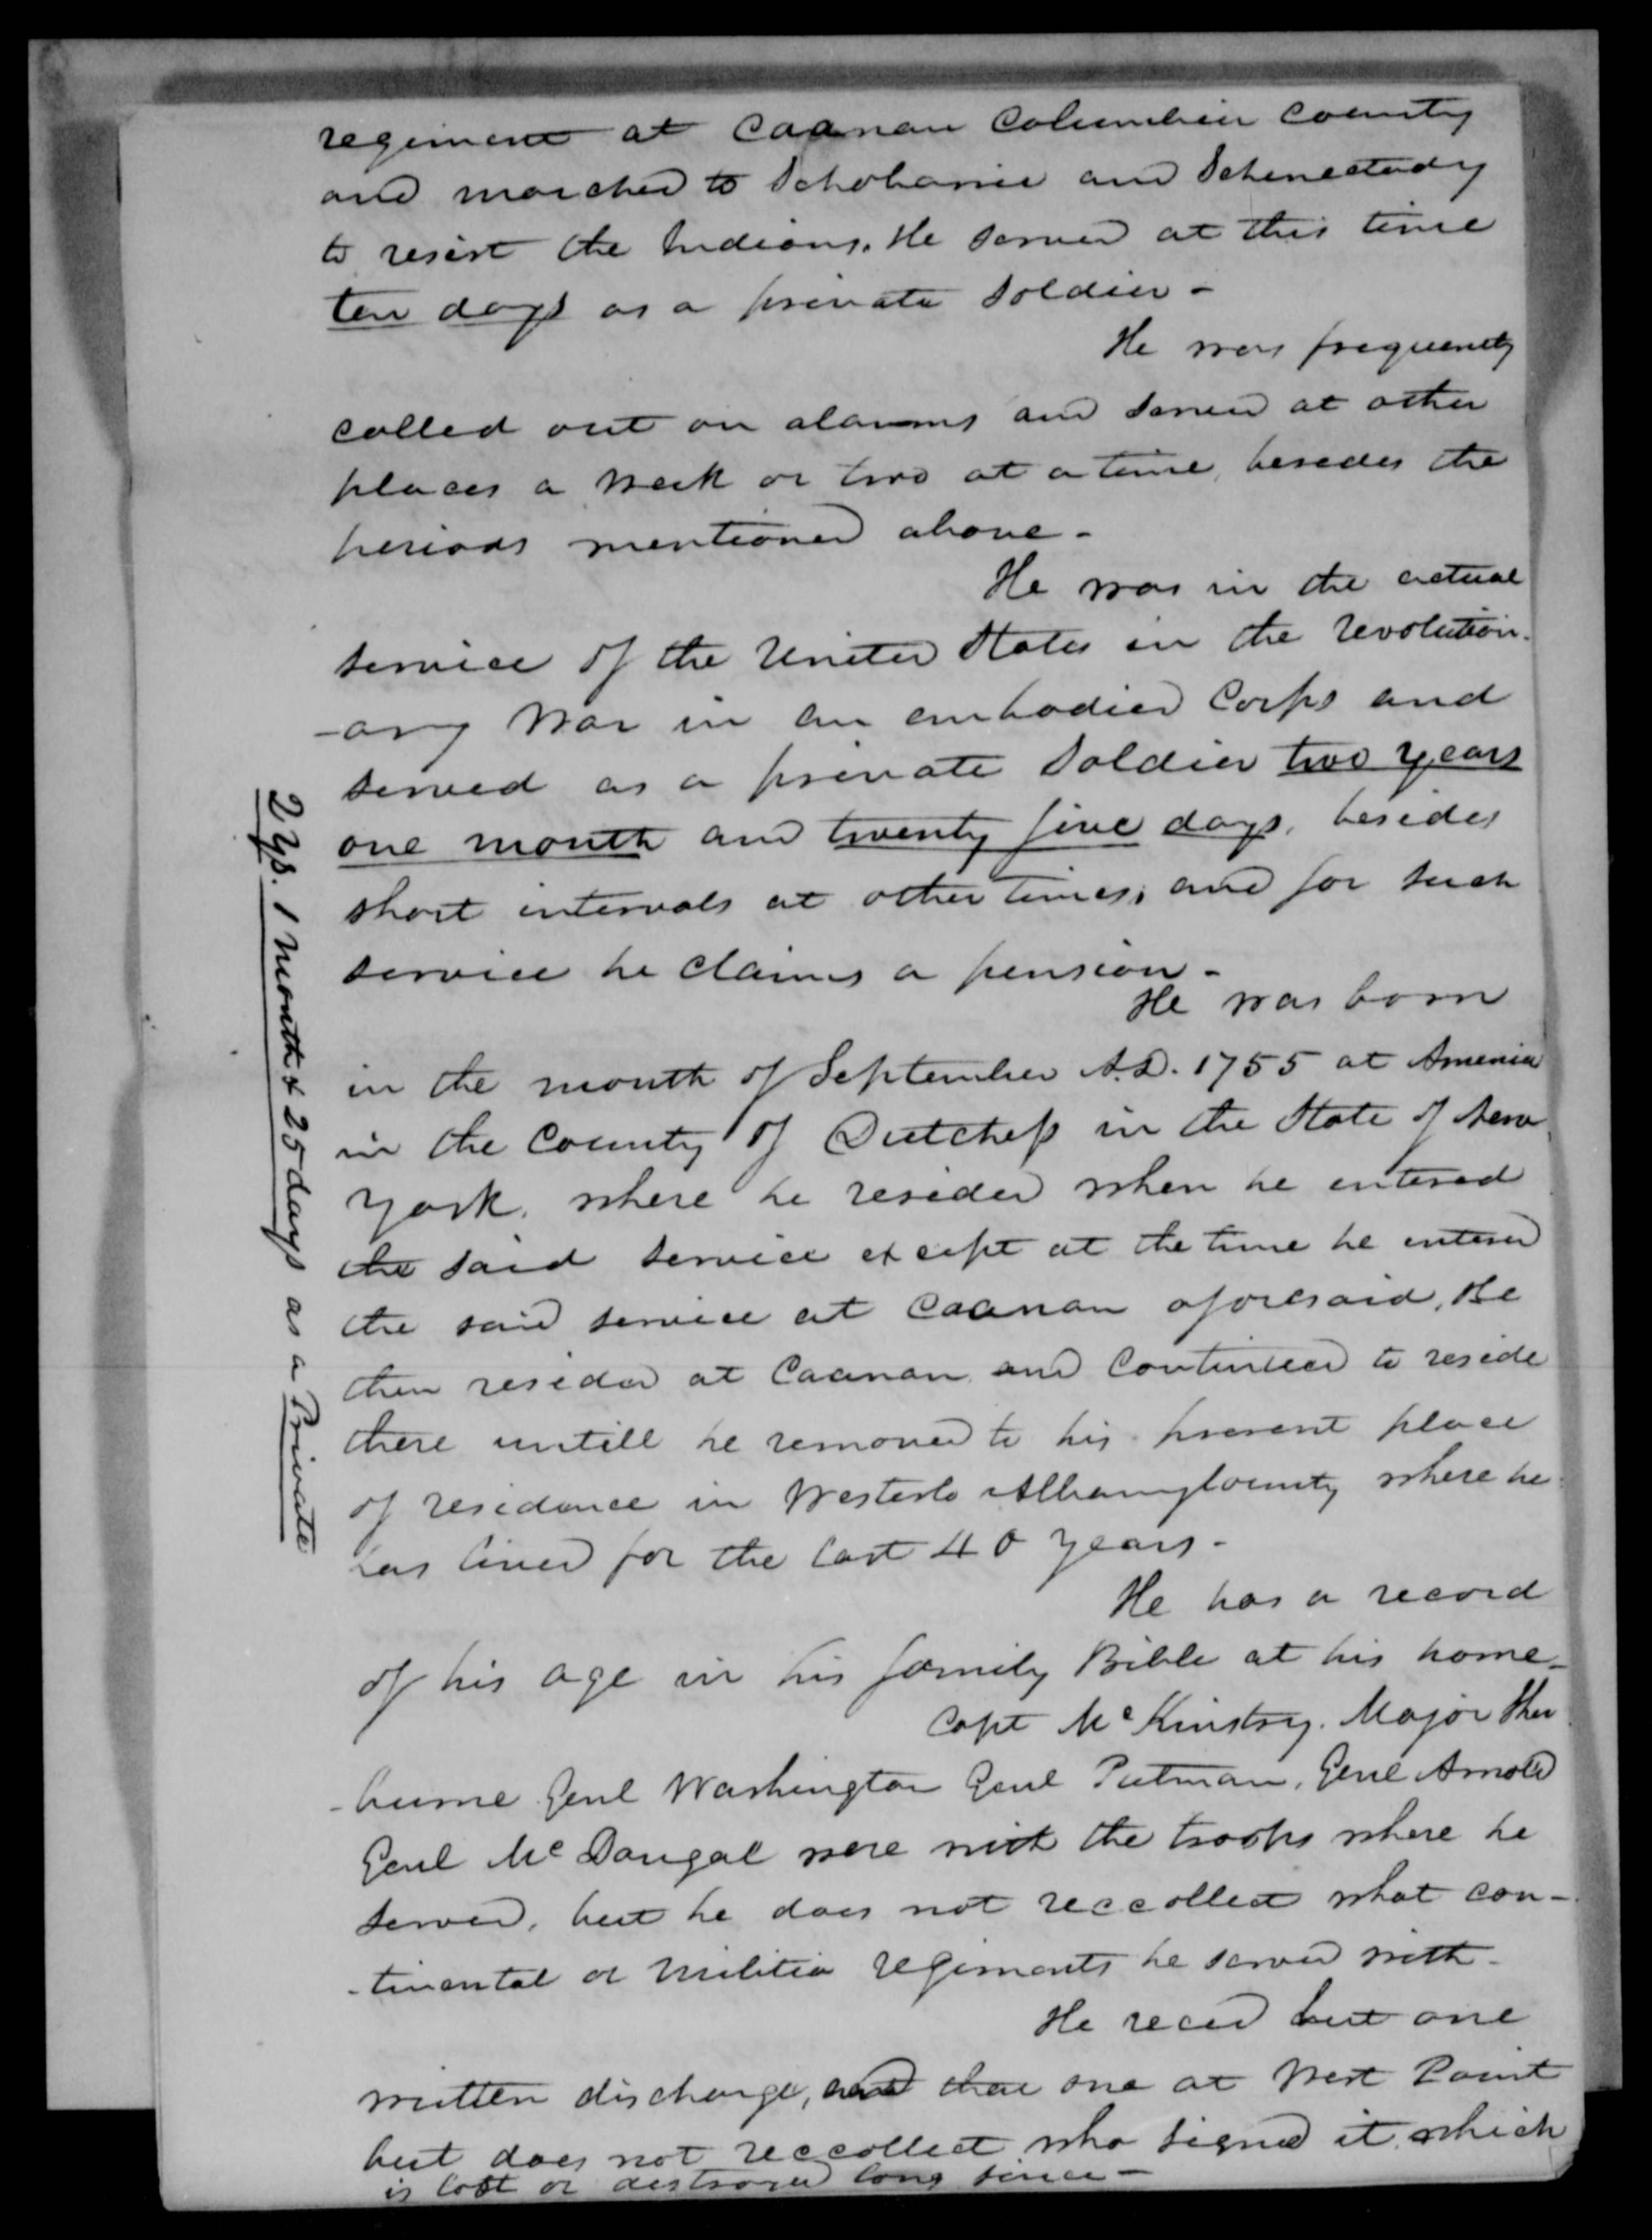 regiment at Caanan Columbia County
and marched to Schoharie and Schenectady
to resist the Indians. He served at this time
ten days as a private soldier -
He was frequently
called out on alarms and served at other
places a week or two at a time, besides the
periods mentioned above -
He was in the actual
service of the United States in the revolution-
-ary War in an embodied Corps and
served as a private soldier two years
one month and twenty five days, besides
short intervals at other times, and for such
service he claims a pension -
He was born
in the month of September A.D. 1755 at Amenia
in the County of Dutchess in the State of New
York, where he resided when he entered
the said service except at the time he entered
the said service at Caanan aforesaid, He
then resided at Caanan and Continued to reside
there untill he removed to his present place
of residence in Westerlo Albany County where he
has lived for the last 40 years -
He has a record
of his age in his family Bible at his home -
Capt McKinstry. Major Shur
-burne Genl Washington Genl Putman, Genl Arnold
Genl McDougal were with the troops where he
served, but he does not reccollect what con-
-tinental or Militia regiments he served with -
He recd but one
written discharge, and that one at West Point
but does not reccollect who signed it, which
is lost or destroyed long since -
2 ys. 1 month & 25 days as a Private